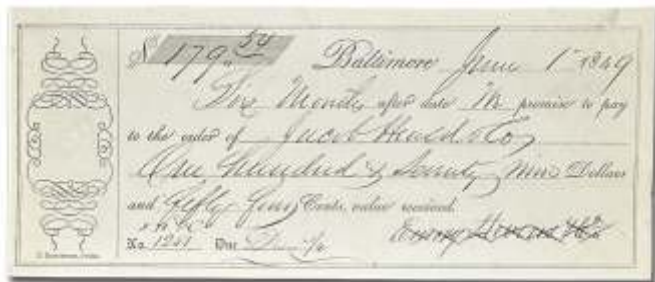 $ 179.54 Baltimore June 1st 1849
Six Months after date We promise to pay
to the order of Jacob Heald & Co
One Hundred & Seventy Nine Dollars
and Fifty four Cents, value received.
No. 1251 Due Dec. 1/4